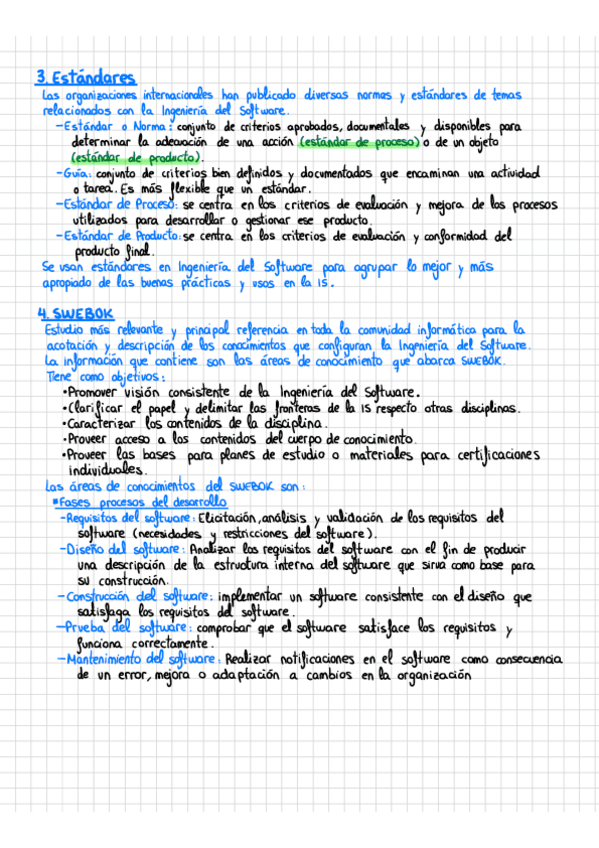 3. Estándares
Las organizaciones internacionales han publicado diversas normas y estándares de temas
relacionados con la Ingeniería del Software.
-Estándar o Norma: conjunto de criterios aprobados, documentales y disponibles para
determinar la adecuación de una acción (estándar de proceso) o de un objeto
(estándar de producto).
-Guía: conjunto de criterios bien definidos y documentados que encaminan una actividad
o tarea. Es más flexible que un estándar.
-Estándar de Proceso: se centra en los criterios de evaluación y mejora de los procesos
utilizados para desarrollar o gestionar ese producto.
-Estándar de Producto: se centra en los criterios de evaluación y conformidad del
producto final.
Se usan estándares en Ingeniería del Software para agrupar lo mejor y más
apropiado de las buenas prácticas y usos en la IS.
4. SWEBOK
Estudio más relevante y principal referencia en toda la comunidad informática para la
acotación y descripción de los conocimientos que configuran la Ingeniería del Software.
La información que contiene son las áreas de conocimiento que abarca SWEBOK.
Tiene como objetivos:
•Promover visión consistente de la Ingeniería del Software.
•Clarificar el papel y delimitar las fronteras de la IS respecto otras disciplinas.
•Caracterizar los contenidos de la disciplina.
•Proveer acceso a los contenidos del cuerpo de conocimiento.
•Proveer las bases para planes de estudio o materiales para certificaciones
individuales.
Las áreas de conocimientos del SWEBOK son:
▪Fases procesos del desarrollo
-Requisitos del software: Elicitación, análisis y validación de los requisitos del
software (necesidades y restricciones del software).
-Diseño del software: Analizar los requisitos del software con el fin de producir
una descripción de la estructura interna del software que sirva como base para
su construcción.
-Construcción del software: implementar un software consistente con el diseño que
satisfaga los requisitos del software.
-Prueba del software: comprobar que el software satisface los requisitos y
funciona correctamente.
-Mantenimiento del software: Realizar notificaciones en el software como consecuencia
de un error, mejora o adaptación a cambios en la organización